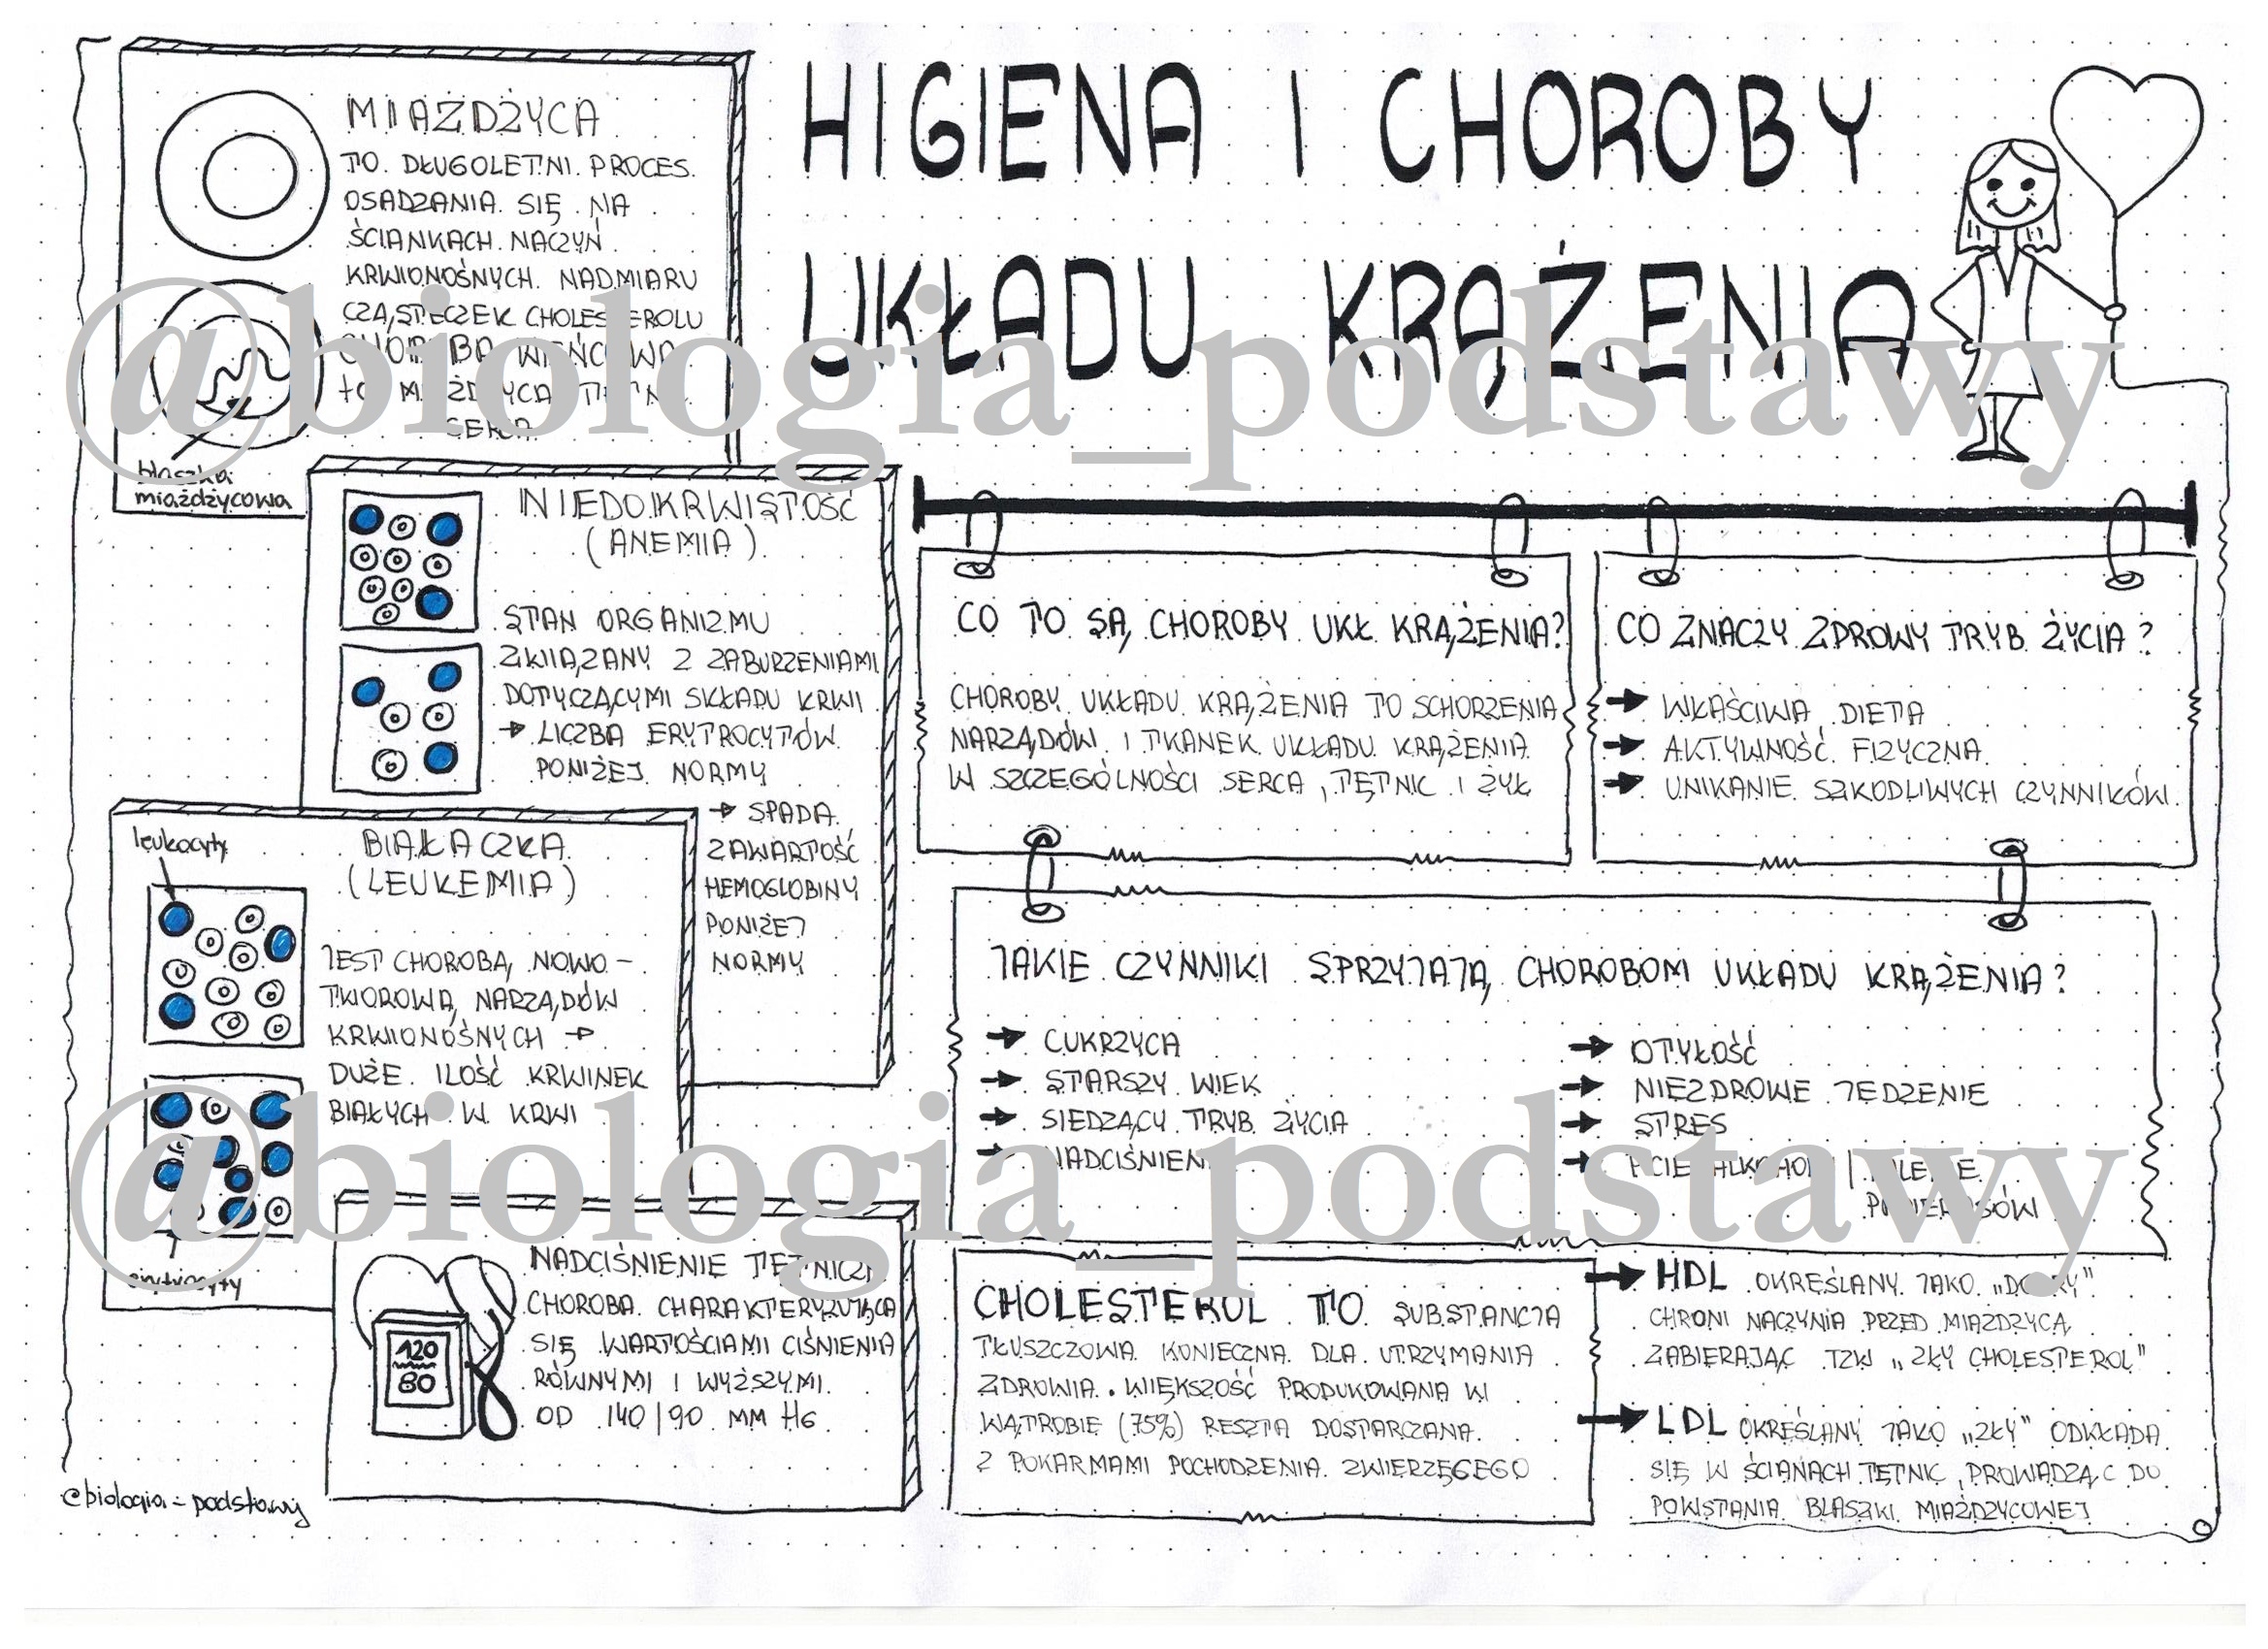 HIGIENA I CHOROBY
UKŁADU KRĄŻENIA
MIAŻDŻYCA
TO DŁUGOLETNI PROCES
OSADZANIA SIĘ NA
ŚCIANKACH NACZYŃ
KRWIONOŚNYCH NADMIARU
CZĄSTECZEK CHOLESTEROLU
CHOROBA WIEŃCOWA
to MIAŻDŻYCA TĘTNIC
SERCA
blaszka
miażdżycowa
NIEDOKRWISTOŚĆ
(ANEMIA)
STAN ORGANIZMU
ZWIĄZANY Z ZABURZENIAMI
DOTYCZĄCYMI SKŁADU KRWI
→ LICZBA ERYTROCYTÓW
PONIŻEJ NORMY
→ SPADA
ZAWARTOŚĆ
HEMOGLOBINY
PONIŻEJ
NORMY
leukocyty
BIAŁACZKA
(LEUKEMIA)
JEST CHOROBĄ NOWO-
TWOROWĄ NARZĄDÓW
KRWIONOŚNYCH →
DUŻE ILOŚĆ KRWINEK
BIAŁYCH W KRWI
erytrocyty
NADCIŚNIENIE TĘTNICZE
CHOROBA CHARAKTERYZUJĄCA
SIĘ WARTOŚCIAMI CIŚNIENIA
RÓWNYMI I WYŻSZYMI
OD 140/90 MM HG
120
80
@biologia_podstawy
CO TO SĄ CHOROBY UKŁ. KRĄŻENIA?
CHOROBY UKŁADU KRĄŻENIA TO SCHORZENIA
NARZĄDÓW I TKANEK UKŁADU KRĄŻENIA
W SZCZEGÓLNOŚCI SERCA, TĘTNIC I ŻYŁ
CO ZNACZY ZDROWY TRYB ŻYCIA?
→ WŁAŚCIWA DIETA
→ AKTYWNOŚĆ FIZYCZNA
→ UNIKANIE SZKODLIWYCH CZYNNIKÓW
JAKIE CZYNNIKI SPRZYJAJĄ CHOROBOM UKŁADU KRĄŻENIA?
→ CUKRZYCA
→ STARSZY WIEK
→ SIEDZĄCY TRYB ŻYCIA
→ NADCIŚNIENIE
→ OTYŁOŚĆ
→ NIEZDROWE JEDZENIE
→ STRES
→ PICIE ALKOHOLU | PALENIE
PAPIEROSÓW
CHOLESTEROL TO SUBSTANCJA
TŁUSZCZOWA KONIECZNA DLA UTRZYMANIA
ZDROWIA. WIĘKSZOŚĆ PRODUKOWANA W
WĄTROBIE (75%) RESZTA DOSTARCZANA
Z POKARMAMI POCHODZENIA ZWIERZĘCEGO
→ HDL OKREŚLANY JAKO „DOBRY"
CHRONI NACZYNIA PRZED MIAŻDŻYCĄ
ZABIERAJĄC TZW „ZŁY CHOLESTEROL"
→ LDL OKREŚLANY JAKO „ZŁY" ODKŁADA
SIĘ W ŚCIANACH TĘTNIC, PROWADZĄC DO
POWSTANIA BLASZKI MIAŻDŻYCOWEJ
@biologia_podstawy
@biologia_podstawy